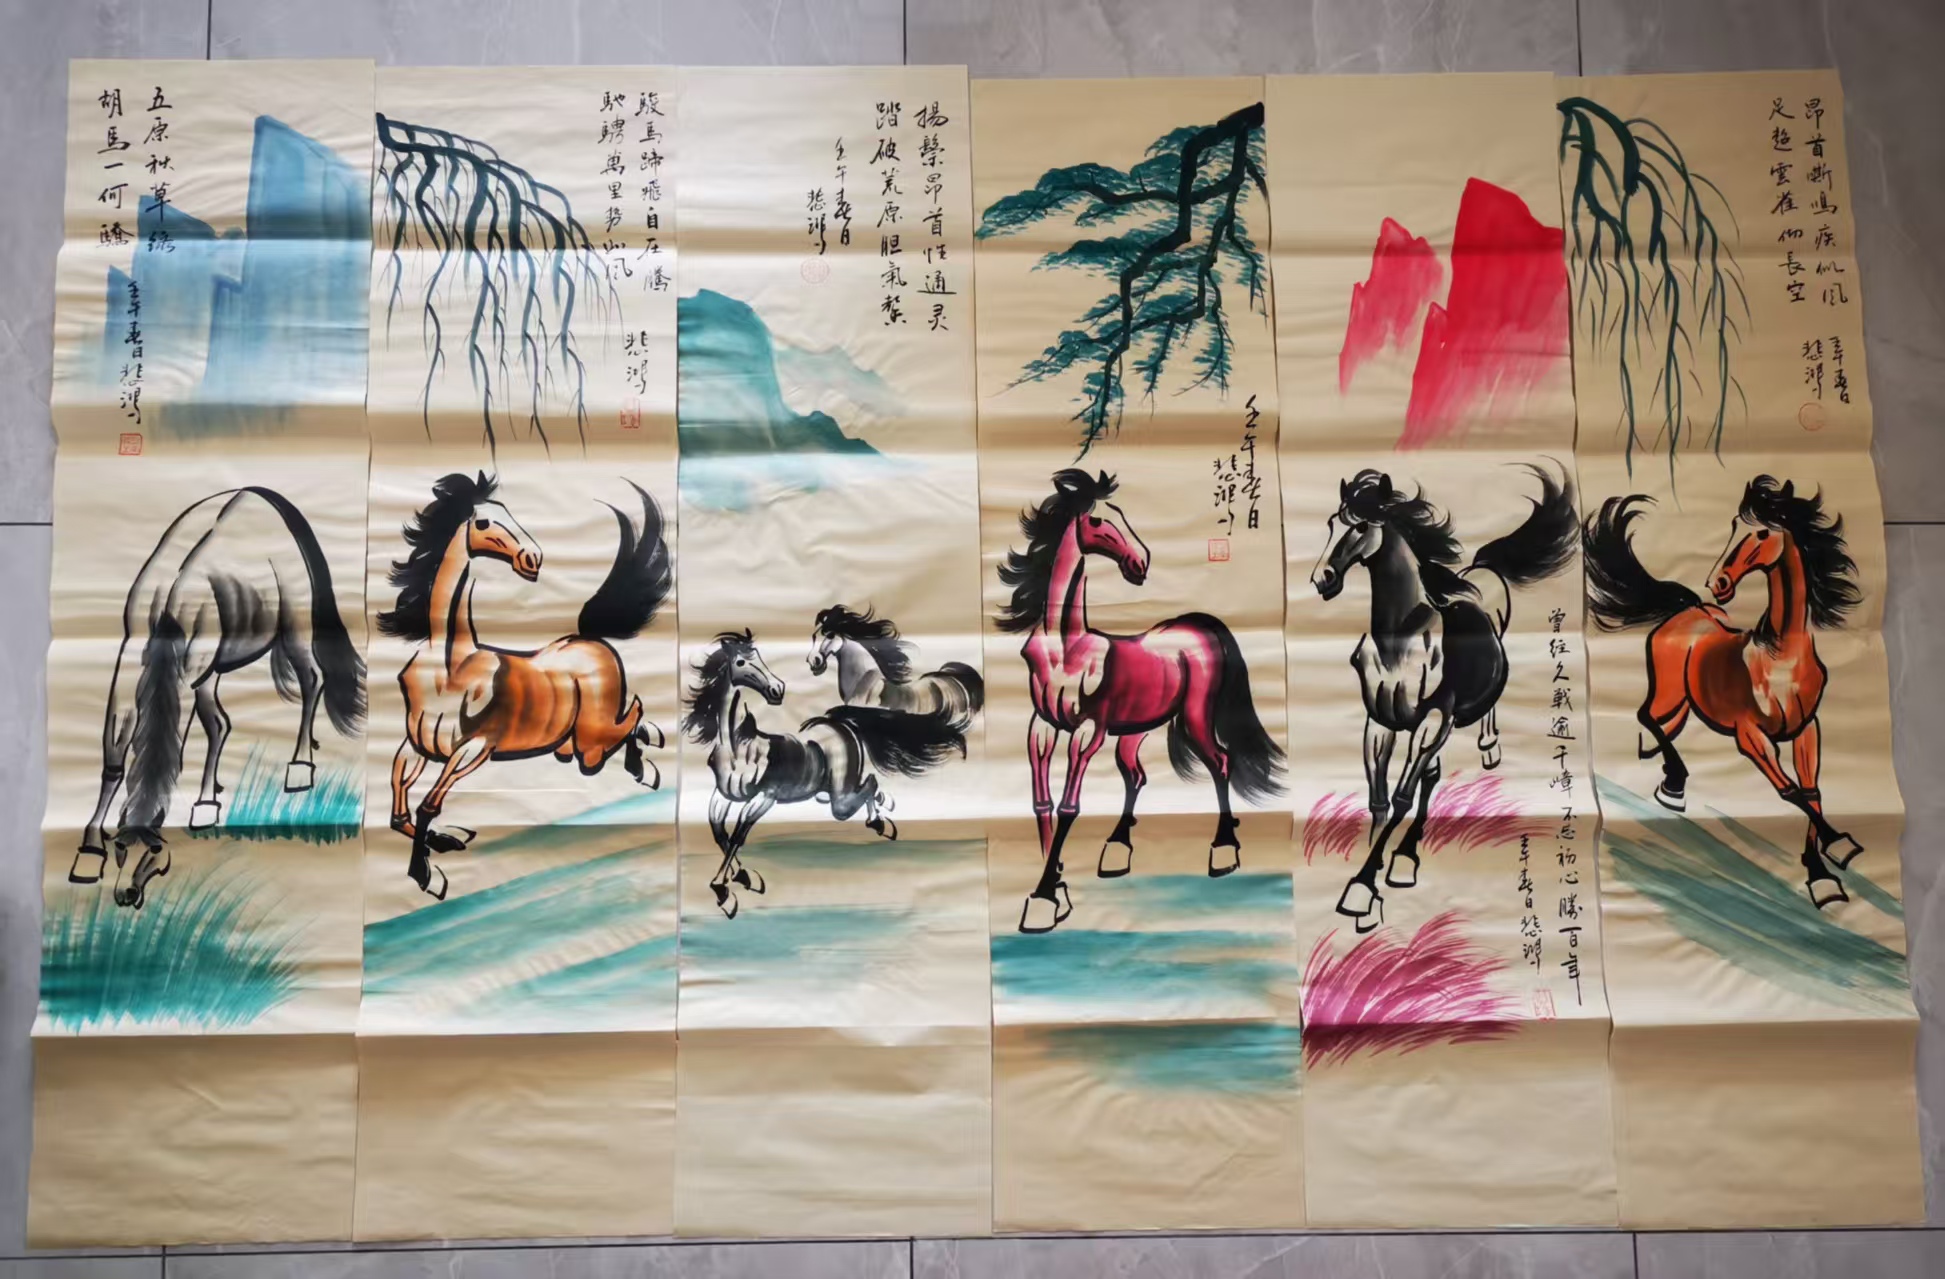 五原秋草綠
胡馬一何驕
壬午春日悲鴻
駿馬蹄飛自在騰
馳騁萬里勢如風
悲鴻
揚鬃昂首性通灵
踏破荒原胆氣
壬午春日
悲鴻
壬午春日
悲鴻
曾经久戰逾千嶂不忘初心勝百年
壬午春日悲鴻
昂首嘶鳴疾似風
足趁雲雀仰長空
壬午春日
悲鴻